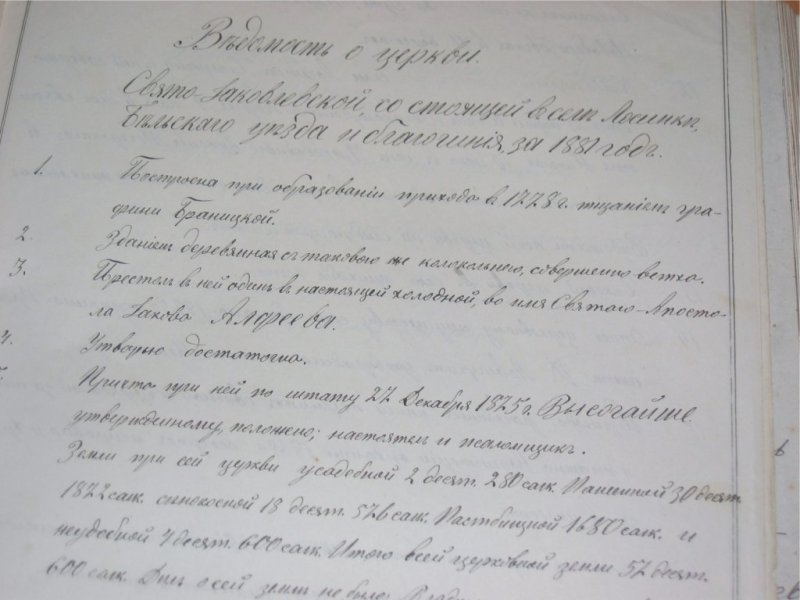 Вѣдомость о церкви.
Свято-Іаковлевской, состоящей въ селѣ Лосинкѣ,
Бѣльскаго уѣзда и благочинія, за 1881 годъ.
1. Построена при образованіи прихода в 1778 г. тщаніемъ гра-
фини Браницкой.
2. Зданіемъ деревянная съ таковою же колокольнею, совершенно ветха.
3. Престолъ в ней одинъ в настоящей холодной, во имя Святаго Апосто-
ла Іакова Алфеева.
4. Утварью достаточна.
Причта при ней по штату 27 Декабря 1875 г. Высочайше
утвержденному, положено; настоятель и псаломщикъ.
Земли при сей церкви усадебной 2 десят. 280 саж. Пашенной 30 десят.
1822 саж. сѣнокосной 18 десят. 526 саж. Пастбищной 1680 саж. и
неудобной 4 десят. 600 саж. Итого всей церковной земли 57 десят.
600 саж. о сей земли не было.